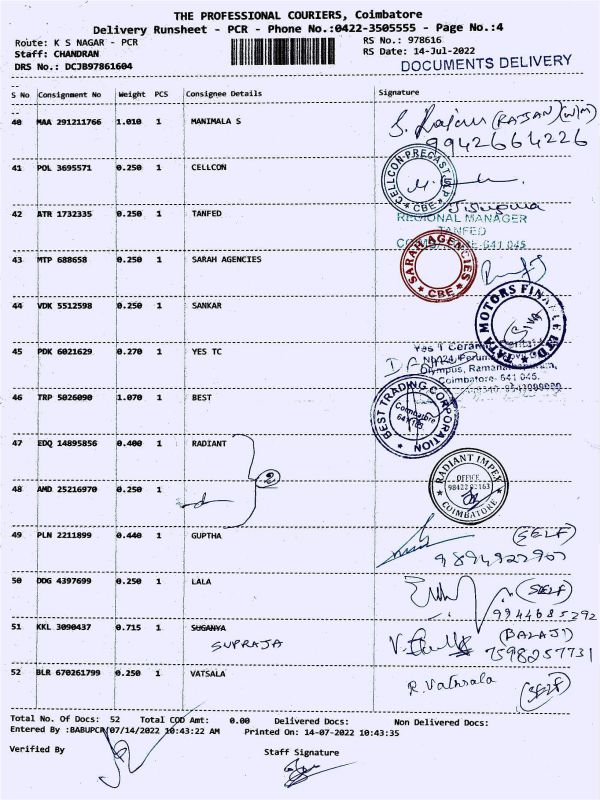 THE PROFESSIONAL COURIERS, Coimbatore
Delivery Runsheet - PCR - Phone No.:0422-3505555 - Page No.:4
Route: K S NAGAR - PCR RS No.: 978616
Staff: CHANDRAN RS Date: 14-Jul-2022
DRS No.: DCJB97861604 DOCUMENTS DELIVERY
S No Consignment No Weight PCS Consignee Details Signature
40 MAA 291211766 1.010 1 MANIMALA S S. Rajan (RAJAN) (W/M)
9942664226
41 POL 3695571 0.250 1 CELLCON CELLCON PRECAST LLP CBE
42 ATR 1732335 0.250 1 TANFED
REGIONAL MANAGER
TANFED
COIMBATORE-641 045
43 MTP 688658 0.250 1 SARAH AGENCIES SARAH AGENCIES CBE
44 VDK 5512598 0.250 1 SANKAR TATA MOTORS FINANCE LTD SIVA
45 PDK 6021629 0.270 1 YES TC Yes T Ceramic
Olympus, Ramanathapuram,
Coimbatore- 641 045.
46 TRP 5026090 1.070 1 BEST BEST TRADING CORPORATION Coimbatore
47 EDQ 14895856 0.400 1 RADIANT RADIANT IMPEX OFFICE COIMBATORE
2
48 AMD 25216970 0.250 1
49 PLN 2211899 0.440 1 GUPTHA (SELF)
9894922907
50 DDG 4397699 0.250 1 LALA (SELF)
9944685292
51 KKL 3090437 0.715 1 SUGANYA (BALAJI)
SUPRAJA 7598257731
52 BLR 670261799 0.250 1 VATSALA R. Vathsala (SELF)
Total No. Of Docs: 52 Total COD Amt: 0.00 Delivered Docs: Non Delivered Docs:
Entered By :BABUPCR(07/14/2022 10:43:22 AM Printed On: 14-07-2022 10:43:35
Verified By Staff Signature